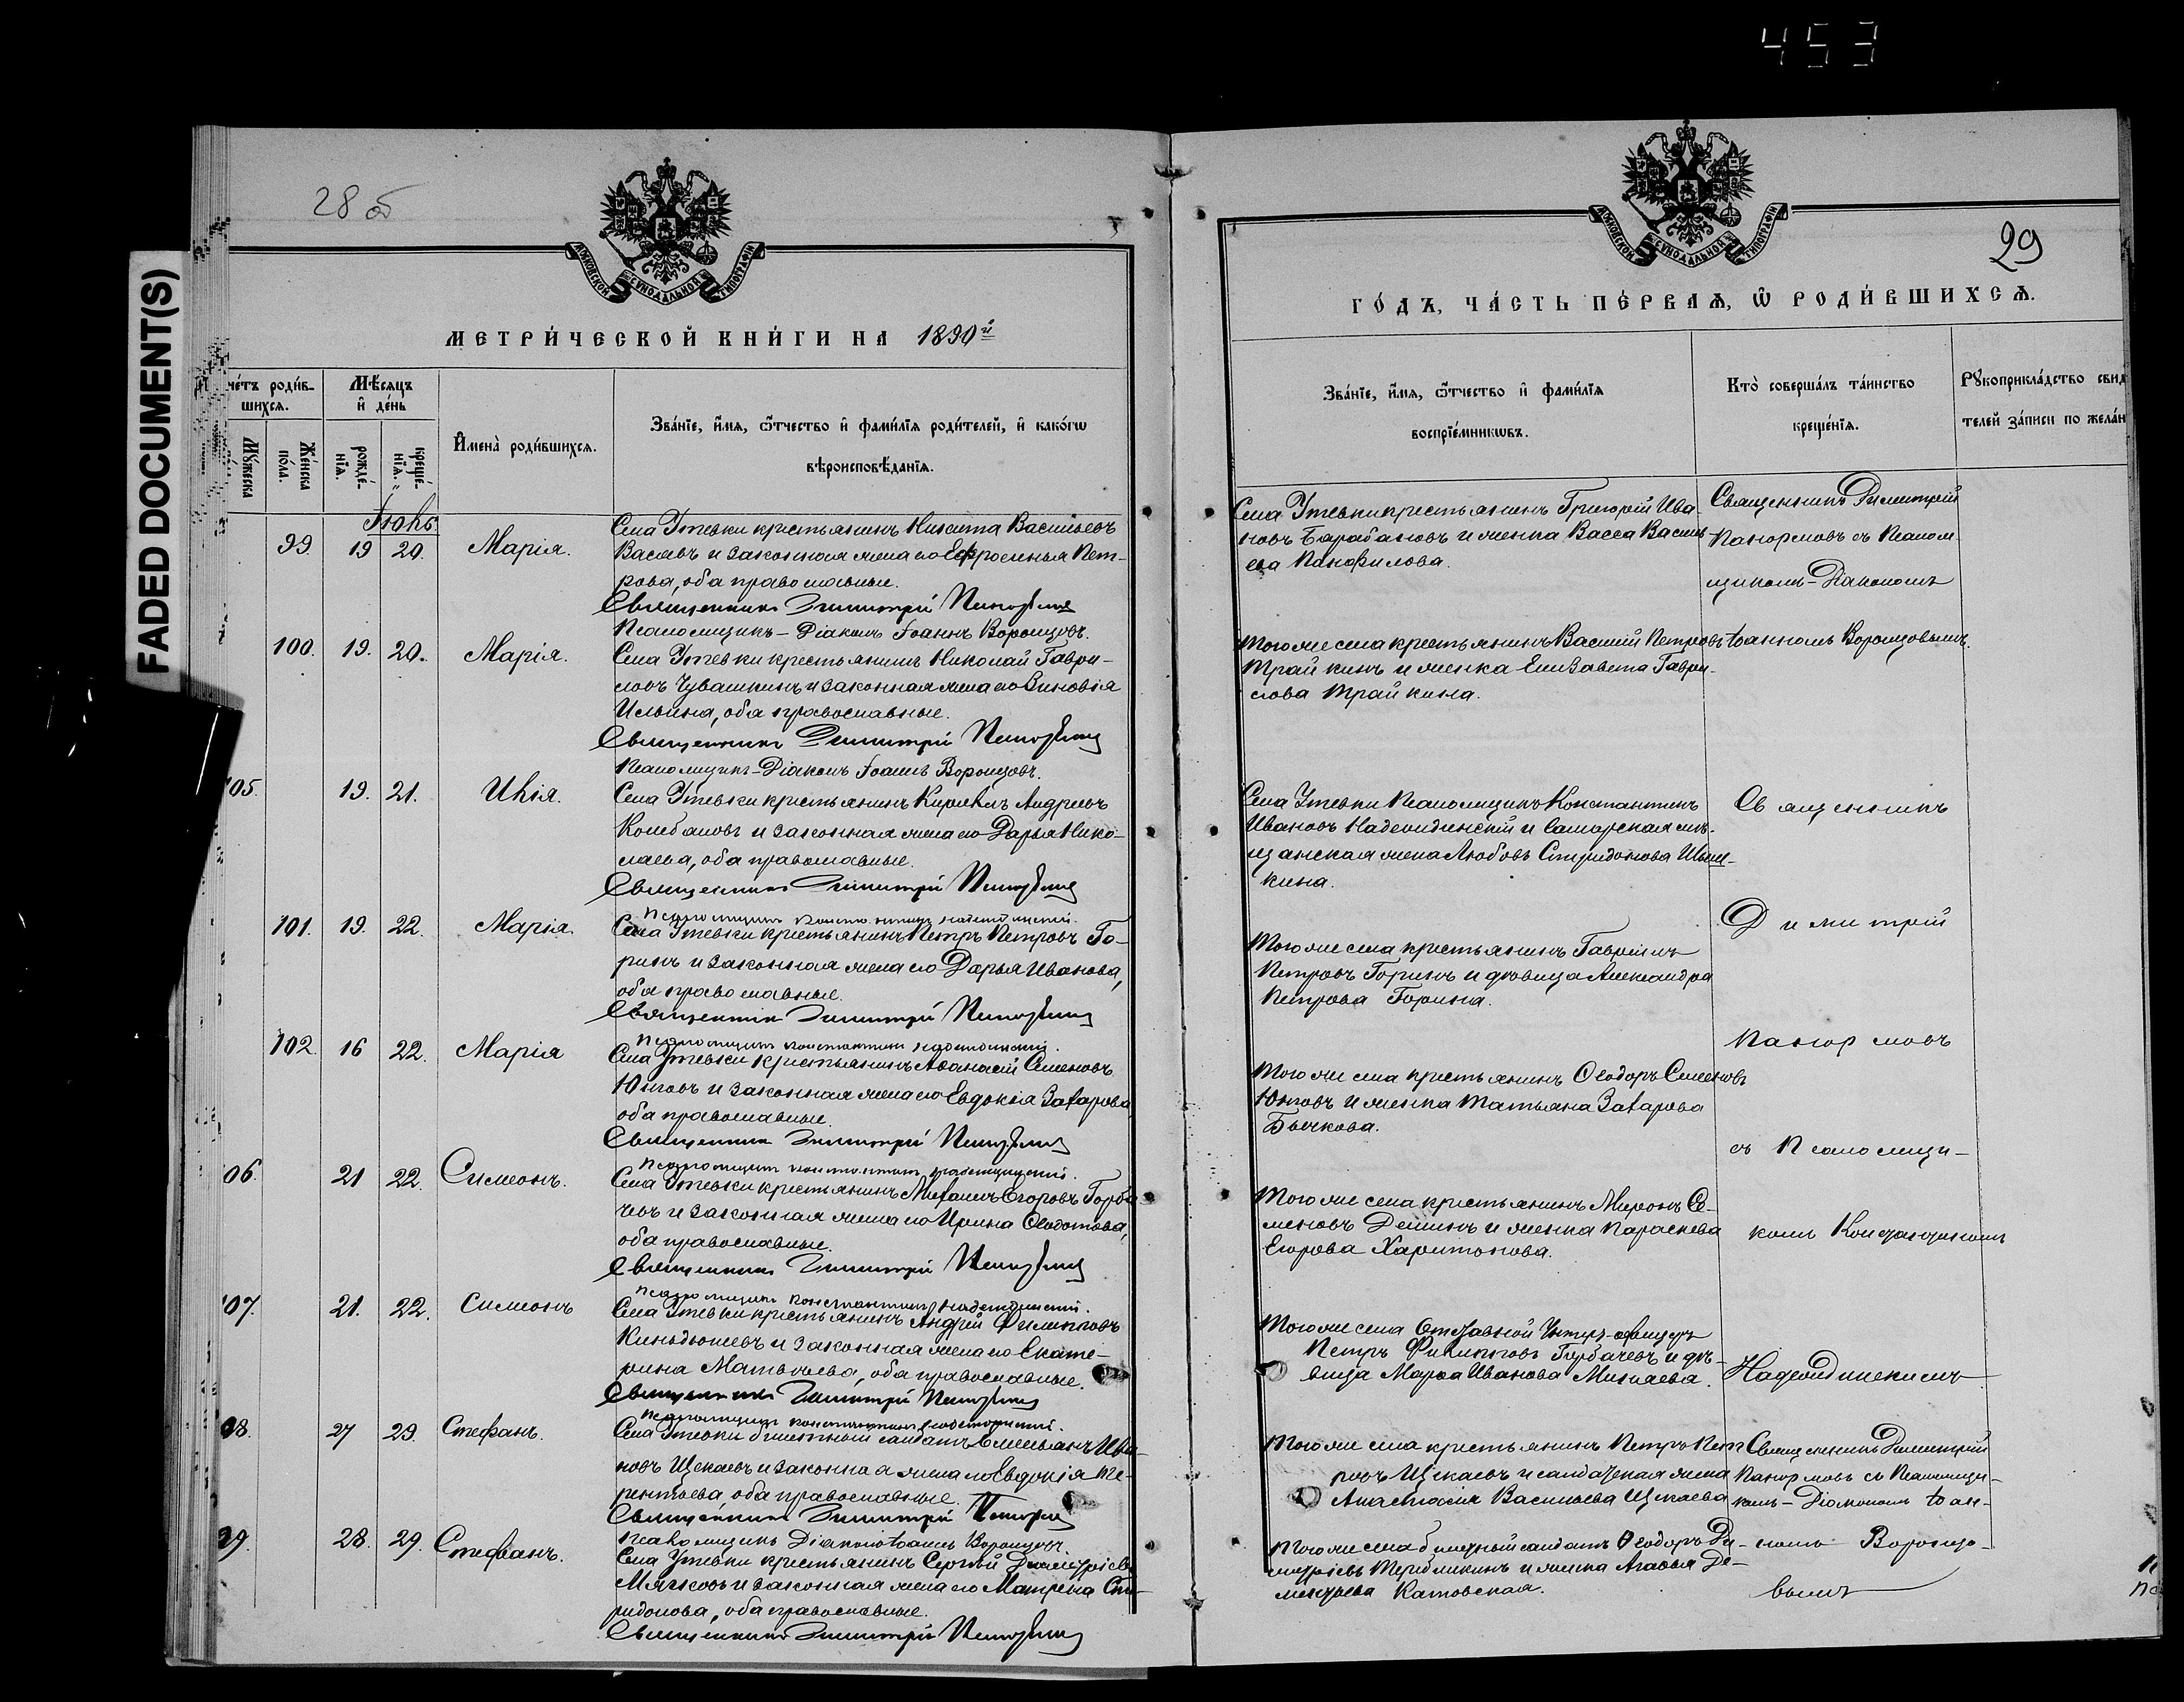 453
FADED DOCUMENT(S)
28 об
МОСКОВСКОЙ СѴНОДАЛЬНОЙ ТИПОГРАФІИ
МЕТРИ́ЧЕСКОЙ КНИ́ГИ НА 1890й
че́тъ роди́в-
шихсѧ.
Мѣ́сяцъ
и҆ де́нь
Мꙋ́жеска
Же́нска
по́ла.
рожде́-
нїѧ.
креще́-
нїѧ.
И҆мена̀ роди́вшихсѧ.
Зва́нїе, и҆́мѧ, ѻ҆́тчество и҆ фами́лїѧ роди́телей, и҆ како́гѡ
вѣроисповѣ́данїѧ.
Іюнь
99. 19 20. Марія.
Села Утевки крестьянинъ Никита Васильевъ
Васяевъ и законная жена его Ефросинья Пет-
рова, оба православные.
Священникъ Димитрій Панормовъ
Псаломщикъ-Діаконъ Іоаннъ Воронцовъ.
100. 19. 20. Марія.
Села Утевки крестьянинъ Николай Гаври-
ловъ Чувашкинъ и законная жена его Зиновія
Ильина, оба православные.
Священникъ Димитрій Панормовъ
Псаломщикъ-Діаконъ Іоаннъ Воронцовъ.
105. 19. 21. Иія.
Села Утевки крестьянинъ Кириллъ Андреевъ
и законная жена его Дарья Нико-
лаева, оба православные.
Священникъ Димитрій Панормовъ
Псаломщикъ Константинъ Надеждинскій.
101. 19. 22. Марія.
Села Утевки крестьянинъ Петръ Петровъ Го-
ринъ и законная жена его Дарья Иванова,
оба православные.
Священникъ Димитрій Панормовъ
Псаломщикъ Константинъ Надеждинскій.
102. 16 22. Марія
Села Утевки крестьянинъ Аѳанасій Семеновъ
Юнговъ и законная жена его Евдокія Захарова
оба православные.
Священникъ Димитрій Панормовъ
Псаломщикъ Константинъ Надеждинскій.
06. 21 22. Симеонъ.
Села Утевки крестьянинъ Михаилъ Егоровъ Горба
чевъ и законная жена его Ирина Ѳедотова,
оба православные.
Священникъ Димитрій Панормовъ
Псаломщикъ Константинъ Надеждинскій.
107. 21. 22. Симеонъ
Села Утевки крестьянинъ Андрей Филипповъ
и законная жена его Екате-
рина Матвѣева, оба православные.
Священникъ Димитрій Панормовъ
Псаломщикъ Константинъ Надеждинскій.
08. 27 29. Стефанъ.
Села Утевки билетный солдатъ Емельянъ Ива-
новъ Щекаевъ и законная жена его Евдокія Те-
рентьева, оба православные.
Священникъ Димитрій
Псаломщикъ Діаконъ Іоаннъ Воронцовъ.
09. 28. 29. Стефанъ.
Села Утевки крестьянинъ Сергѣй Димитріевъ
Мячковъ и законная жена его Матрена Спи-
ридонова, оба православные.
Священникъ Димитрій Панормовъ
29
МОСКОВСКОЙ СѴНОДАЛЬНОЙ ТИПОГРАФІИ
ГО́ДЪ, ЧА́СТЬ ПЕ́РВАѦ, Ѡ҆ РОДИ́ВШИХСѦ.
Зва́нїе, и҆́мѧ, ѻ҆́тчество и҆ фами́лїѧ
воспрїе́мникѡвъ.
Кто̀ соверша́лъ та́инство
креще́нїѧ.
Рꙋкоприкла́дство свид
телей за́писи по жела́н
Села Утевки крестьянинъ Григорій Ива-
новъ Барабановъ и женка Васса Василь-
ева Панфилова.
Священникъ Димитрій
Панормовъ съ Псалом-
щикомъ-Діакономъ
Того же села крестьянинъ Василій Петровъ
Трайкинъ и женка Елизавета Гаври-
лова Трайкина.
Іоанномъ Воронцовымъ.
Села Утевки Псаломщикъ Константинъ
Ивановъ Надеждинскій и Самарская мѣ-
щанская жена Любовь Спиридонова
кина.
Священникъ
Димитрій
Того же села крестьянинъ Гавріилъ
Петровъ Горинъ и дѣвица Александра
Петрова Горина.
Панормовъ
Того же села крестьянинъ Ѳеодоръ Семеновъ
Юнговъ и женка Татьяна Захарова
Бычкова.
съ Псаломщи-
Того же села крестьянинъ Миронъ Се-
меновъ Деминъ и женка Параскева
Егорова Харитонова.
комъ Константиномъ
Того же села Отставной Унтеръ-офицеръ
Петръ Филипповъ Горбачевъ и дѣ-
вица Марѳа Иванова Минаева.
Надеждинскимъ
Того же села крестьянинъ Петръ Пет
ровъ Щекаевъ и солдатская жена
Анастасія Васильева Щекаева
Священникъ Димитрій
Панормовъ съ Псаломщи-
комъ-Діакономъ Іоан-
Того же села билетный солдатъ Ѳеодоръ Ди-
митріевъ и женка Агаѳья Де-
ментьева Катовская.
номъ Воронцо-
вымъ